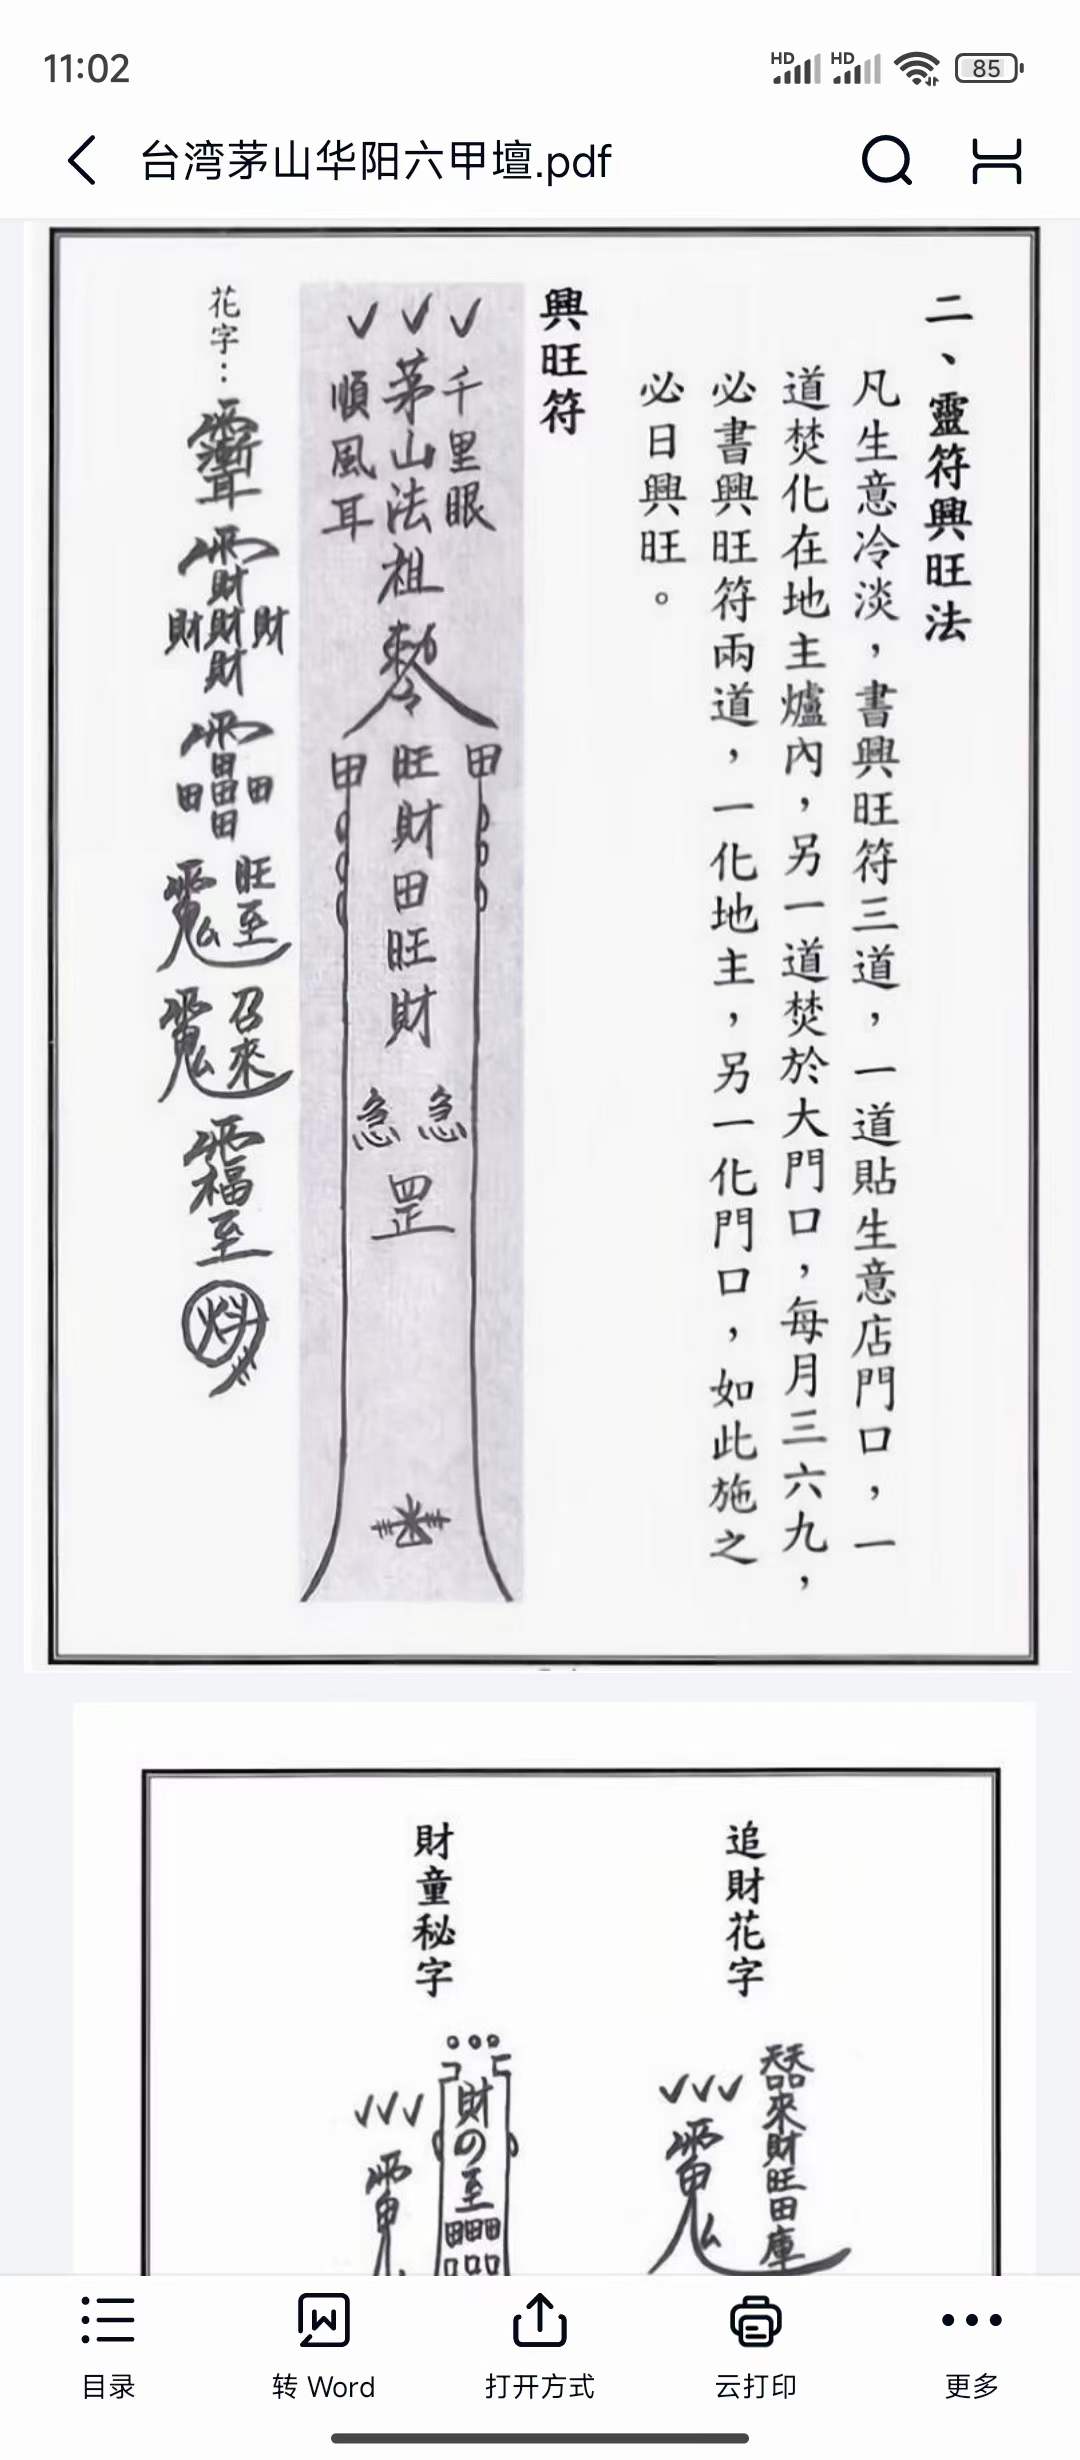 11:02
HD HD 85
台湾茅山华阳六甲壇.pdf
二、靈符興旺法
凡生意冷淡，書興旺符三道，一道貼生意店門口，一
道焚化在地主爐內，另一道焚於大門口，每月三六九，
必書興旺符兩道，一化地主，另一化門口，如此施之
必日興旺。
興旺符
千里眼
茅山法祖
順風耳
甲 甲
旺財田旺財
急急
罡
花字：
財
財財財
財
田
田田田
田
旺至
召來
福至
追財花字
來財旺田庫
財童秘字
財
至
目录
转 Word
打开方式
云打印
更多